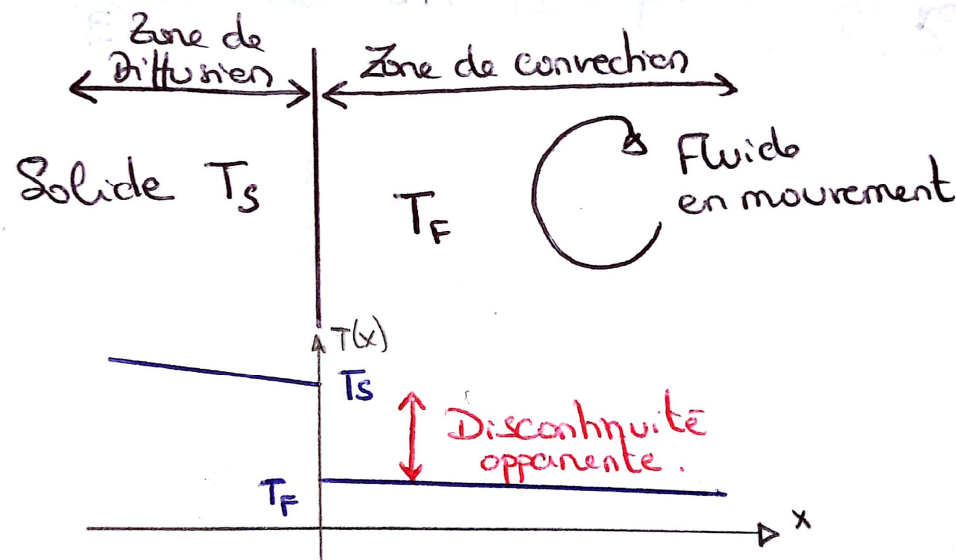 Zone de
Diffusion
Zone de convection
Solide T_S
T_F
Fluide
en mouvement
T(x)
T_S
Discontinuité
apparente.
T_F
x